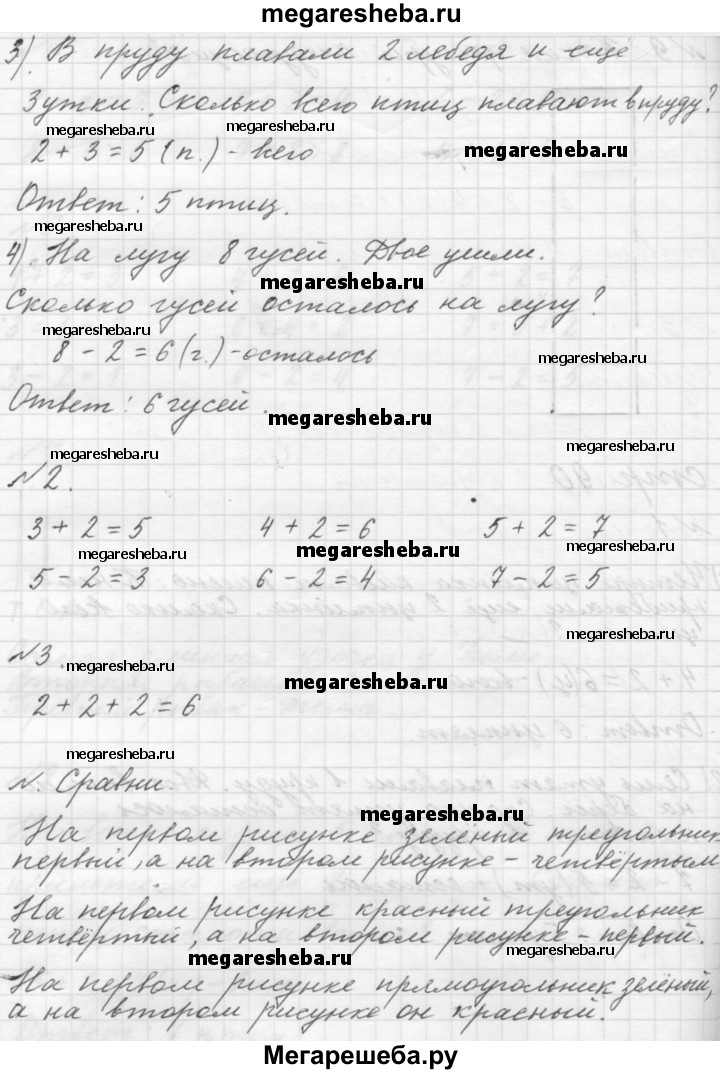 megaresheba.ru
3). В пруду плавали 2 лебедя и еще
3 утки. Сколько всего птиц плавают в пруду?
megaresheba.ru megaresheba.ru
2 + 3 = 5 (п.) - всего megaresheba.ru
Ответ: 5 птиц.
megaresheba.ru
4). На лугу 8 гусей. Двое ушли.
megaresheba.ru
Сколько гусей осталось на лугу?
megaresheba.ru
8 - 2 = 6 (г.) - осталось megaresheba.ru
Ответ: 6 гусей.
megaresheba.ru
megaresheba.ru megaresheba.ru
№2.
3 + 2 = 5 4 + 2 = 6 5 + 2 = 7
megaresheba.ru megaresheba.ru megaresheba.ru
5 - 2 = 3 6 - 2 = 4 7 - 2 = 5
megaresheba.ru
№3.
megaresheba.ru megaresheba.ru
2 + 2 + 2 = 6
megaresheba.ru
№. Сравни.
megaresheba.ru
На первом рисунке зелёный треугольник
первый, а на втором рисунке - четвёртый
На первом рисунке красный треугольник
четвёртый, а на втором рисунке - первый.
megaresheba.ru megaresheba.ru
На первом рисунке прямоугольник зелёный,
а на втором рисунке он красный.
Мегарешеба.ру